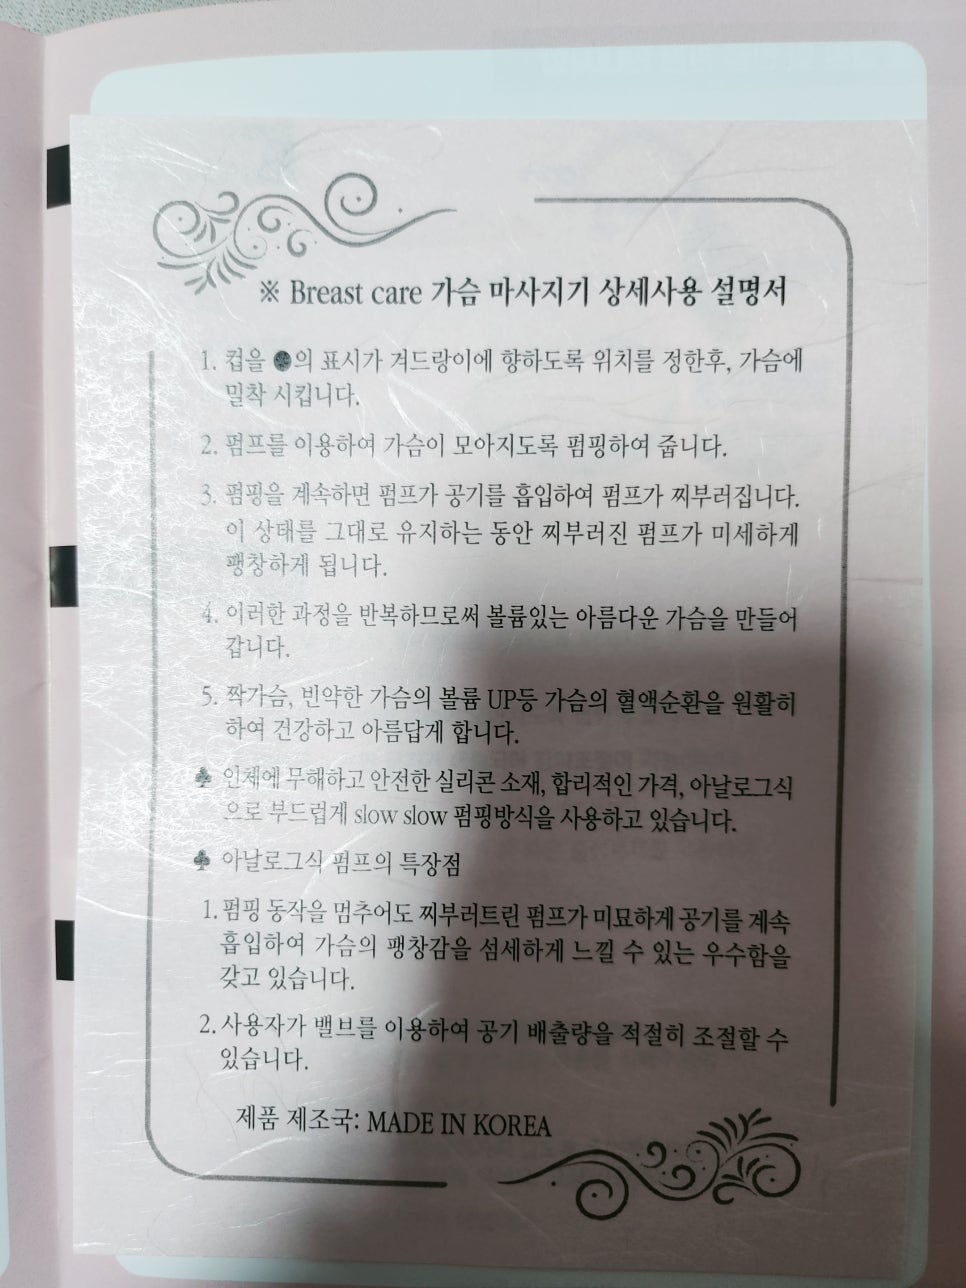 ※ Breast care 가슴 마사지기 상세사용 설명서
1. 컵을 ●의 표시가 겨드랑이에 향하도록 위치를 정한후, 가슴에
밀착 시킵니다.
2. 펌프를 이용하여 가슴이 모아지도록 펌핑하여 줍니다.
3. 펌핑을 계속하면 펌프가 공기를 흡입하여 펌프가 찌부러집니다.
이 상태를 그대로 유지하는 동안 찌부러진 펌프가 미세하게
팽창하게 됩니다.
4. 이러한 과정을 반복하므로써 볼륨있는 아름다운 가슴을 만들어
갑니다.
5. 짝가슴, 빈약한 가슴의 볼륨 UP등 가슴의 혈액순환을 원활히
하여 건강하고 아름답게 합니다.
♣ 인체에 무해하고 안전한 실리콘 소재, 합리적인 가격, 아날로그식
으로 부드럽게 slow slow 펌핑방식을 사용하고 있습니다.
♣ 아날로그식 펌프의 특장점
1. 펌핑 동작을 멈추어도 찌부러트린 펌프가 미묘하게 공기를 계속
흡입하여 가슴의 팽창감을 섬세하게 느낄 수 있는 우수함을
갖고 있습니다.
2. 사용자가 밸브를 이용하여 공기 배출량을 적절히 조절할 수
있습니다.
제품 제조국: MADE IN KOREA